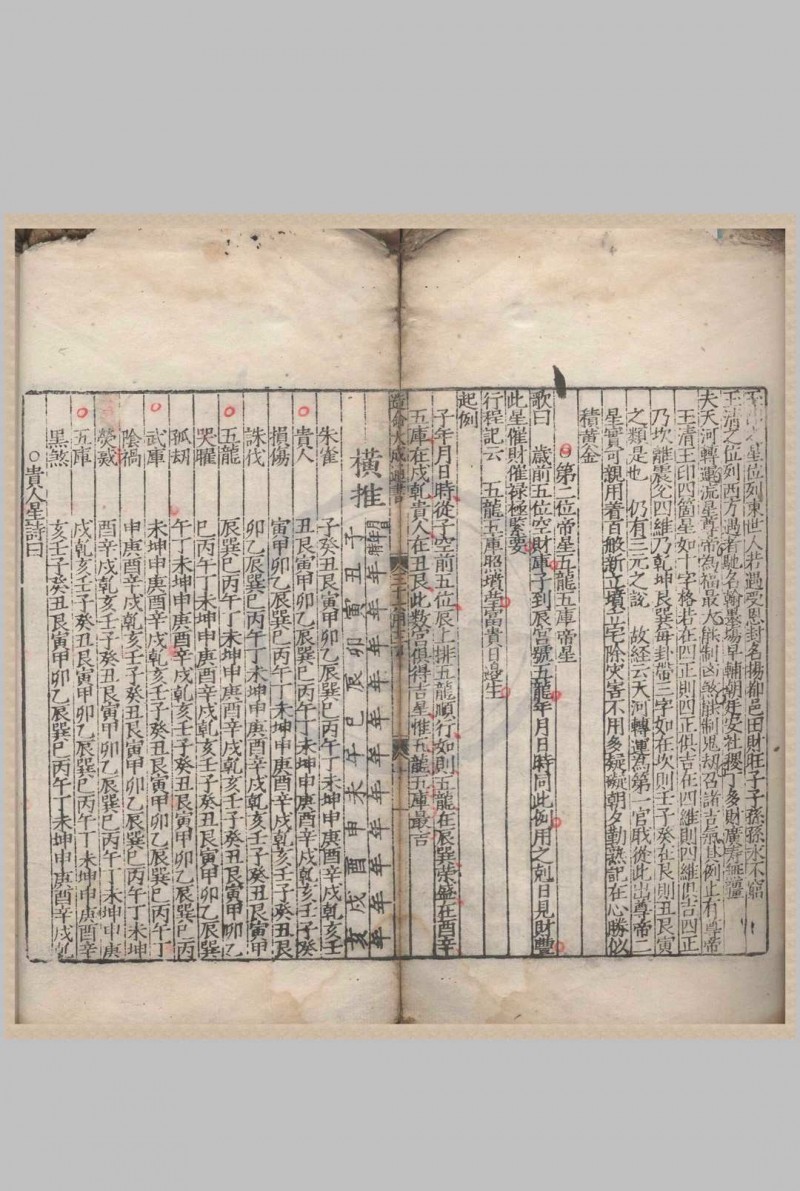 星位列東世人若遇受恩封名揚鄉邑田財旺子子孫孫永不窮
玉清之位列西方遇者馳名翰墨場早輔朝廷安社稷丁多財廣壽無疆
夫天河轉運流星尊帝為福最大能制凶煞能制鬼劫召諸吉氣其例止有尊帝
玉清玉印四箇星如十字格若在四正則四正俱吉在四維則四維俱吉四正
乃坎離震兌四維乃乾坤艮巽每卦帶三字如在坎則壬子癸在艮則丑艮寅
之類是也 仍有三元之說 故經云天河轉運為第一官職從此出尊帝二
星實可親用着百般新立墳立宅除灾害不用多疑礙朝夕勤熟記在心勝似
積黃金
第二位帝星五龍五庫帝星
歌曰 歲前五位空財庫子到辰宮號五龍年月日時同此例用之剋日見財豐
此星催財催祿極緊要
行程記云 五龍五庫照墳堂富貴日邉生
起例
子年月日時從子空前五位辰上排五龍順行如則五龍在辰巽榮盛在酉辛
五庫在戌乾貴人在丑艮此数宮俱得吉星惟五龍五庫最吉
造命大成通書
橫推
子年 丑年 寅年 卯年 辰年 巳年 午年 未年 申年 酉年 戌年 亥年
朱雀 子癸丑艮寅甲卯乙辰巽巳丙午丁未坤申庚酉辛戌乾亥壬
貴人 丑艮寅甲卯乙辰巽巳丙午丁未坤申庚酉辛戌乾亥壬子癸
損傷 寅甲卯乙辰巽巳丙午丁未坤申庚酉辛戌乾亥壬子癸丑艮
誅伐 卯乙辰巽巳丙午丁未坤申庚酉辛戌乾亥壬子癸丑艮寅甲
五龍 辰巽巳丙午丁未坤申庚酉辛戌乾亥壬子癸丑艮寅甲卯乙
哭曜 巳丙午丁未坤申庚酉辛戌乾亥壬子癸丑艮寅甲卯乙辰巽
孤刧 午丁未坤申庚酉辛戌乾亥壬子癸丑艮寅甲卯乙辰巽巳丙
武庫 未坤申庚酉辛戌乾亥壬子癸丑艮寅甲卯乙辰巽巳丙午丁
陰禍 申庚酉辛戌乾亥壬子癸丑艮寅甲卯乙辰巽巳丙午丁未坤
熒惑 酉辛戌乾亥壬子癸丑艮寅甲卯乙辰巽巳丙午丁未坤申庚
五庫 戌乾亥壬子癸丑艮寅甲卯乙辰巽巳丙午丁未坤申庚酉辛
黑煞 亥壬子癸丑艮寅甲卯乙辰巽巳丙午丁未坤申庚酉辛戌乾
○貴人星詩曰